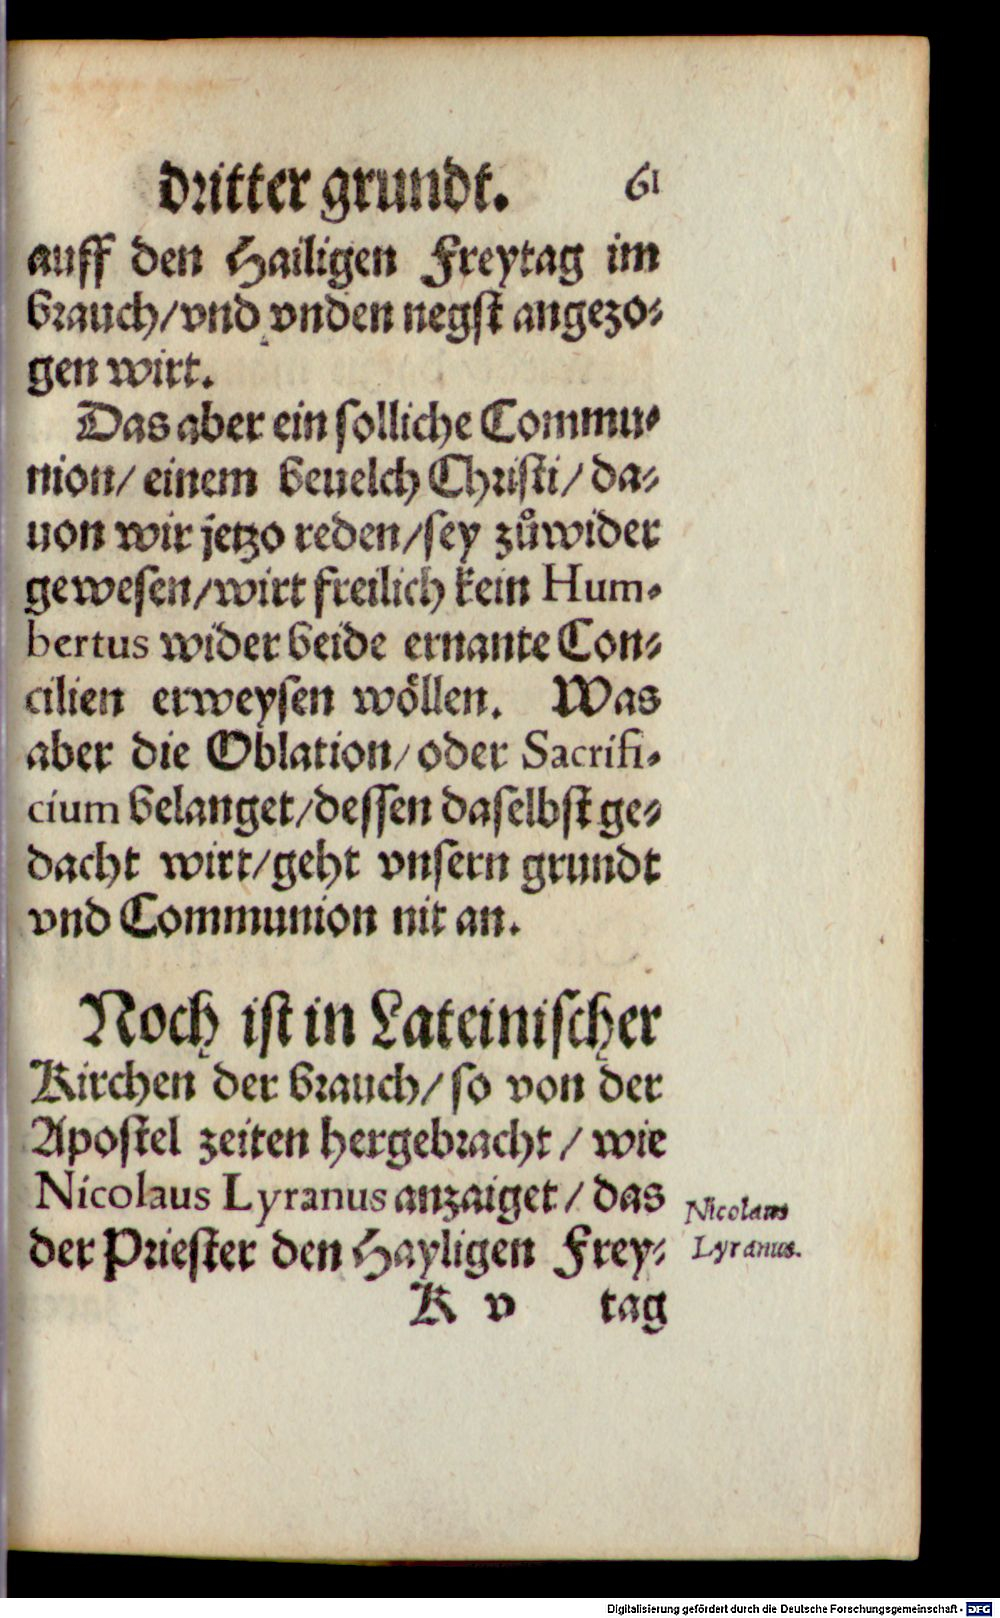 dritter grundt. 61
auff den Hailigen Freytag im
brauch/vnd vnden negst angezo-
gen wirt.
Das aber ein solliche Commu-
nion/ einem beuelch Christi/ da-
uon wir jetzo reden/sey zůwider
gewesen/wirt freilich kein Hum-
bertus wider beide ernante Con-
cilien erweysen wöllen. Was
aber die Oblation/ oder Sacrifi-
cium belanget/dessen daselbst ge-
dacht wirt/geht vnsern grundt
vnd Communion nit an.
Noch ist in Lateinischer
Kirchen der brauch/ so von der
Apostel zeiten hergebracht / wie
Nicolaus Lyranus anzaiget/ das
der Priester den Hayligen Frey-
Nicolaus
Lyranus.
K v tag
Digitalisierung gefördert durch die Deutsche Forschungsgemeinschaft - DFG